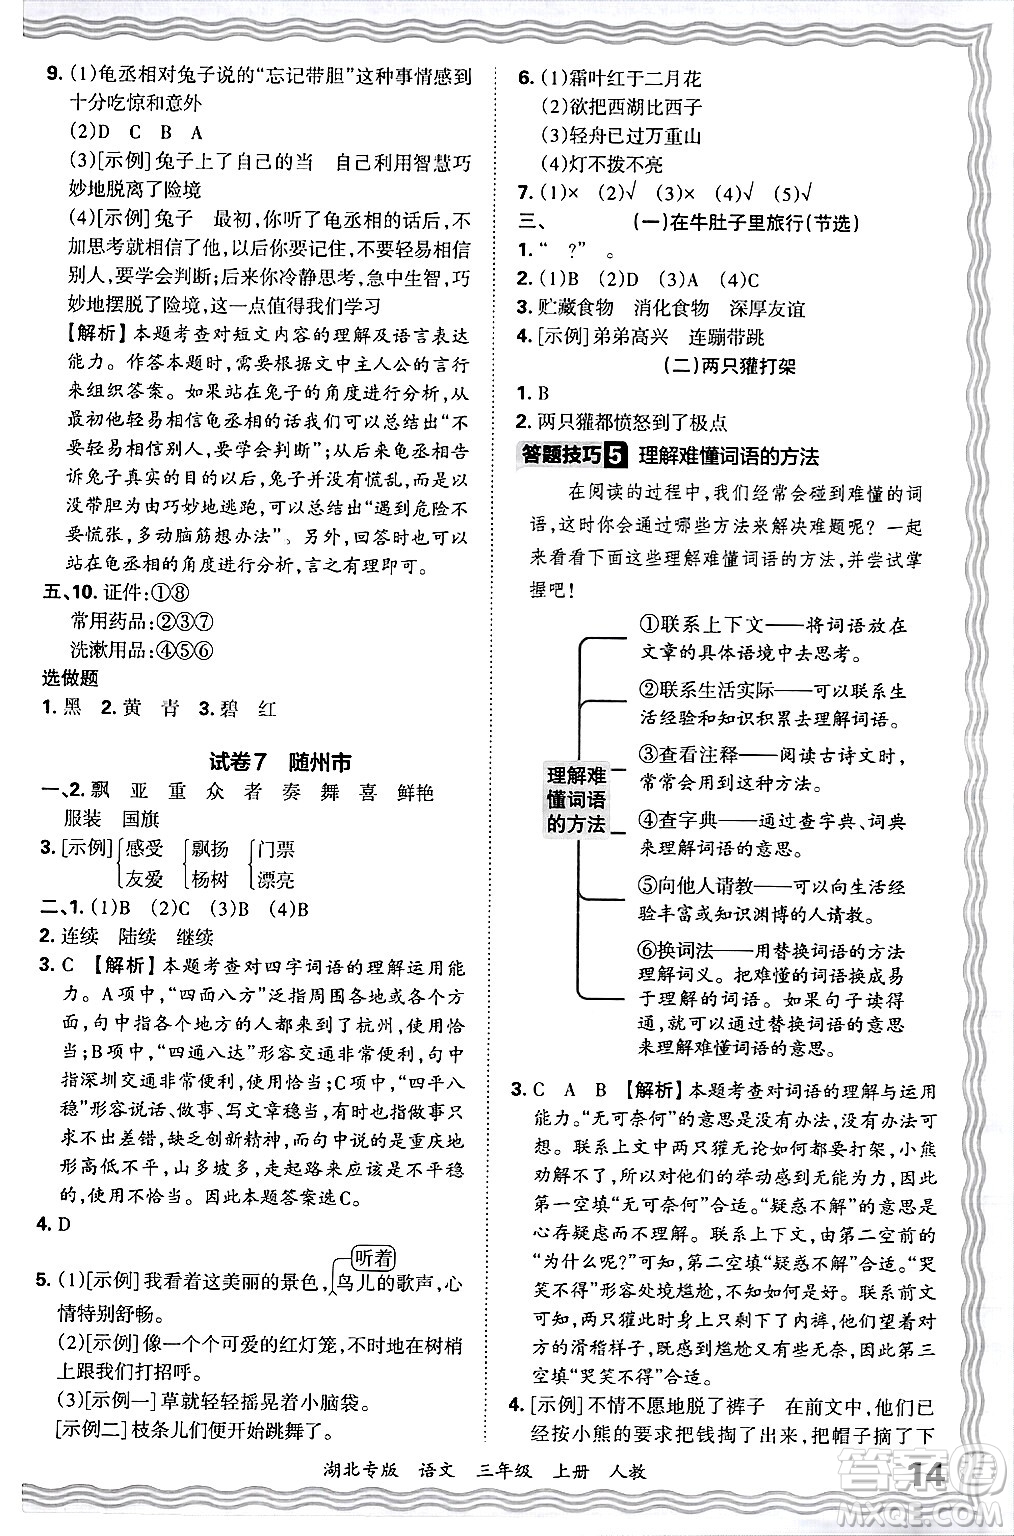 9. (1)龟丞相对兔子说的“忘记带胆”这种事情感到
十分吃惊和意外
(2)D C B A
(3)[示例]兔子上了自己的当 自己利用智慧巧
妙地脱离了险境
(4)[示例]兔子 最初,你听了龟丞相的话后,不
加思考就相信了他,以后你要记住,不要轻易相信
别人,要学会判断;后来你冷静思考,急中生智,巧
妙地摆脱了险境,这一点值得我们学习
【解析】本题考查对短文内容的理解及语言表达
能力。作答本题时,需要根据文中主人公的言行
来组织答案。如果站在兔子的角度进行分析,从
最初他轻易相信龟丞相的话我们可以总结出“不
要轻易相信别人,要学会判断”;后来龟丞相告
诉兔子真实的目的以后,兔子并没有慌乱,而是以
没带胆为由巧妙地逃跑,可以总结出“遇到危险不
要慌张,多动脑筋想办法”。另外,回答时也可以
站在龟丞相的角度进行分析,言之有理即可。
五、10. 证件:①⑧
常用药品:②③⑦
洗漱用品:④⑤⑥
选做题
1. 黑 2. 黄 青 3. 碧 红
试卷7 随州市
一、2. 飘 亚 重 众 者 奏 舞 喜 鲜艳
服装 国旗
3. [示例] 感受 飘扬 门票
友爱 杨树 漂亮
二、1. (1)B (2)C (3)B (4)B
2. 连续 陆续 继续
3. C 【解析】本题考查对四字词语的理解运用能
力。A项中,“四面八方”泛指周围各地或各个方
面,句中指各个地方的人都来到了杭州,使用恰
当;B项中,“四通八达”形容交通非常便利,句中
指深圳交通非常便利,使用恰当;C项中,“四平八
稳”形容说话、做事、写文章稳当,有时也指做事只
求不出差错,缺乏创新精神,而句中描述的重庆地
形高低不平,山多坡多,走起路来应该是不平稳
的,使用不恰当。因此本题答案选C。
4. D
听着
5. (1)[示例]我看着这美丽的景色,鸟儿的歌声,心
情特别舒畅。
(2)[示例]像一个个可爱的红灯笼,不时地在树梢
上跟我们打招呼。
(3)[示例一]草就轻轻摇晃着小脑袋。
[示例二]枝条儿们便开始跳舞了。
6. (1)霜叶红于二月花
(2)欲把西湖比西子
(3)轻舟已过万重山
(4)灯不拨不亮
7. (1)× (2)√ (3)× (4)√ (5)√
三、 (一)在牛肚子里旅行(节选)
1. “ ?” 。
2. (1)B (2)D (3)A (4)C
3. 贮藏食物 消化食物 深厚友谊
4. [示例]弟弟高兴 连蹦带跳
(二)两只獾打架
1. B
2. 两只獾都愤怒到了极点
答题技巧5 理解难懂词语的方法
在阅读的过程中,我们经常会碰到难懂的词
语,这时你会通过哪些方法来解决难题呢?一起
来看看下面这些理解难懂词语的方法,并尝试掌
握吧!
理解难
懂词语
的方法
①联系上下文——将词语放在
文章的具体语境中去思考。
②联系生活实际——可以联系生
活经验和知识积累去理解词语。
③查看注释——阅读古诗文时,
常常会用到这种方法。
④查字典——通过查字典、词典
来理解词语的意思。
⑤向他人请教——可以向生活经
验丰富或知识渊博的人请教。
⑥换词法——用替换词语的方法
理解词义。把难懂的词语换成易
于理解的词语。如果句子读得
通,就可以通过替换词语的意思
来理解难懂词语的意思。
3. C A B 【解析】本题考查对词语的理解与运用
能力。“无可奈何”的意思是没有办法,没有办法可
想。联系上文中两只獾无论如何都要打架,小熊
劝解不了,所以对他们的举动感到无可奈何,因此
第一空填“无可奈何”合适。“疑惑不解”的意思是
心存疑虑而不理解。联系上下文,由第二空前的
“为什么呢?”可知,第二空填“疑惑不解”合适。“哭
笑不得”形容处境尴尬,不知如何是好。联系前文
可知,两只獾此时身上只剩下了内裤,他们看着对
方的滑稽样子,一定感到尴尬又有些无奈,第三
空填“哭笑不得”合适。
4. [示例]不情不愿地脱了裤子 在前文中,他们已
经按小熊的要求把钱掏了出来,把帽子摘了下
湖北专版 语文 三年级 上册 人教
14
答案圈
MXQE.COM